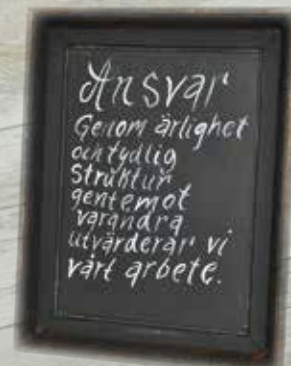 Ansvar
Genom ärlighet
och tydlig
struktur
gentemot
varandra
utvärderar vi
vårt arbete.